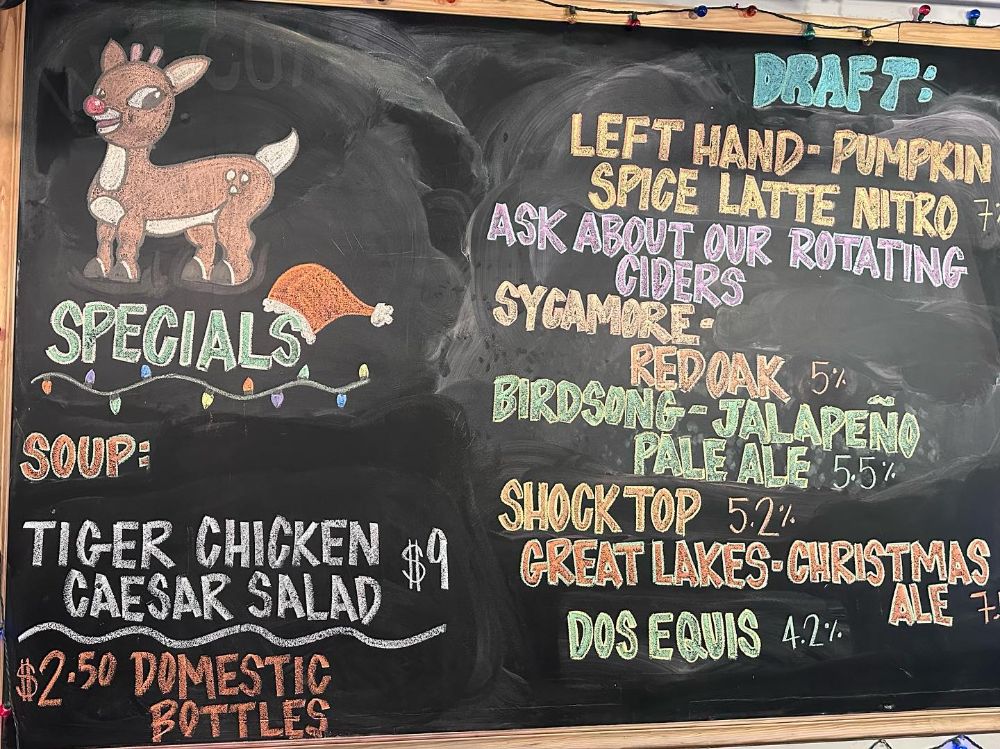 SPECIALS
SOUP:
TIGER CHICKEN
CAESAR SALAD $9
$2.50 DOMESTIC
BOTTLES
DRAFT:
LEFT HAND - PUMPKIN
SPICE LATTE NITRO 7
ASK ABOUT OUR ROTATING
CIDERS
SYCAMORE -
RED OAK 5%
BIRDSONG - JALAPEÑO
PALE ALE 5.5%
SHOCK TOP 5.2%
GREAT LAKES - CHRISTMAS
ALE 7.
DOS EQUIS 4.2%